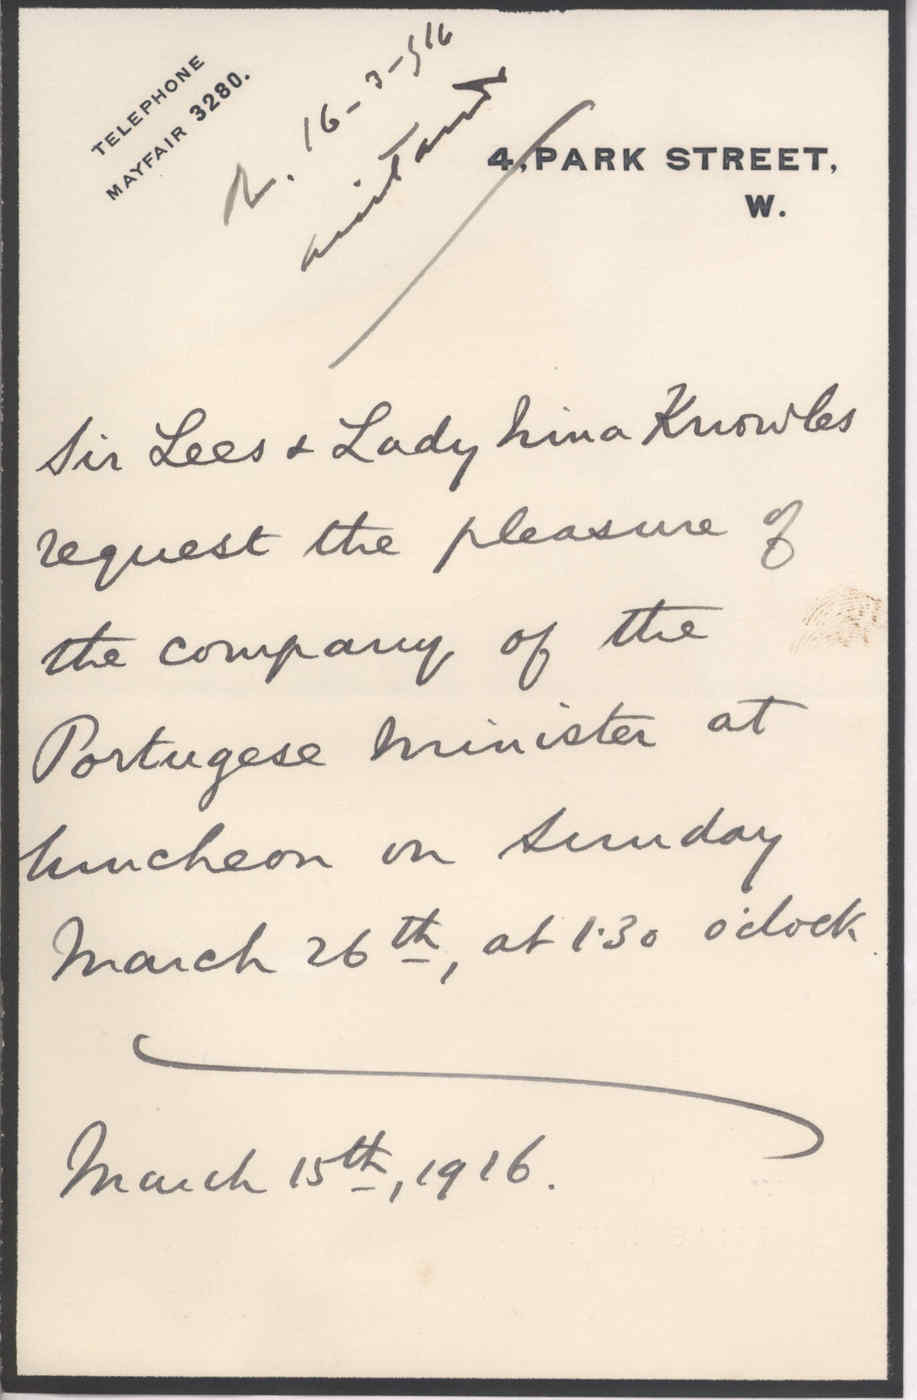 TELEPHONE
MAYFAIR 3280.
R. 16-3-916
4, PARK STREET,
W.
Sir Lees & Lady Nina Knowles
request the pleasure of
the company of the
Portugese Minister at
luncheon on Sunday
March 26th, at 1.30 o'clock
March 15th, 1916.